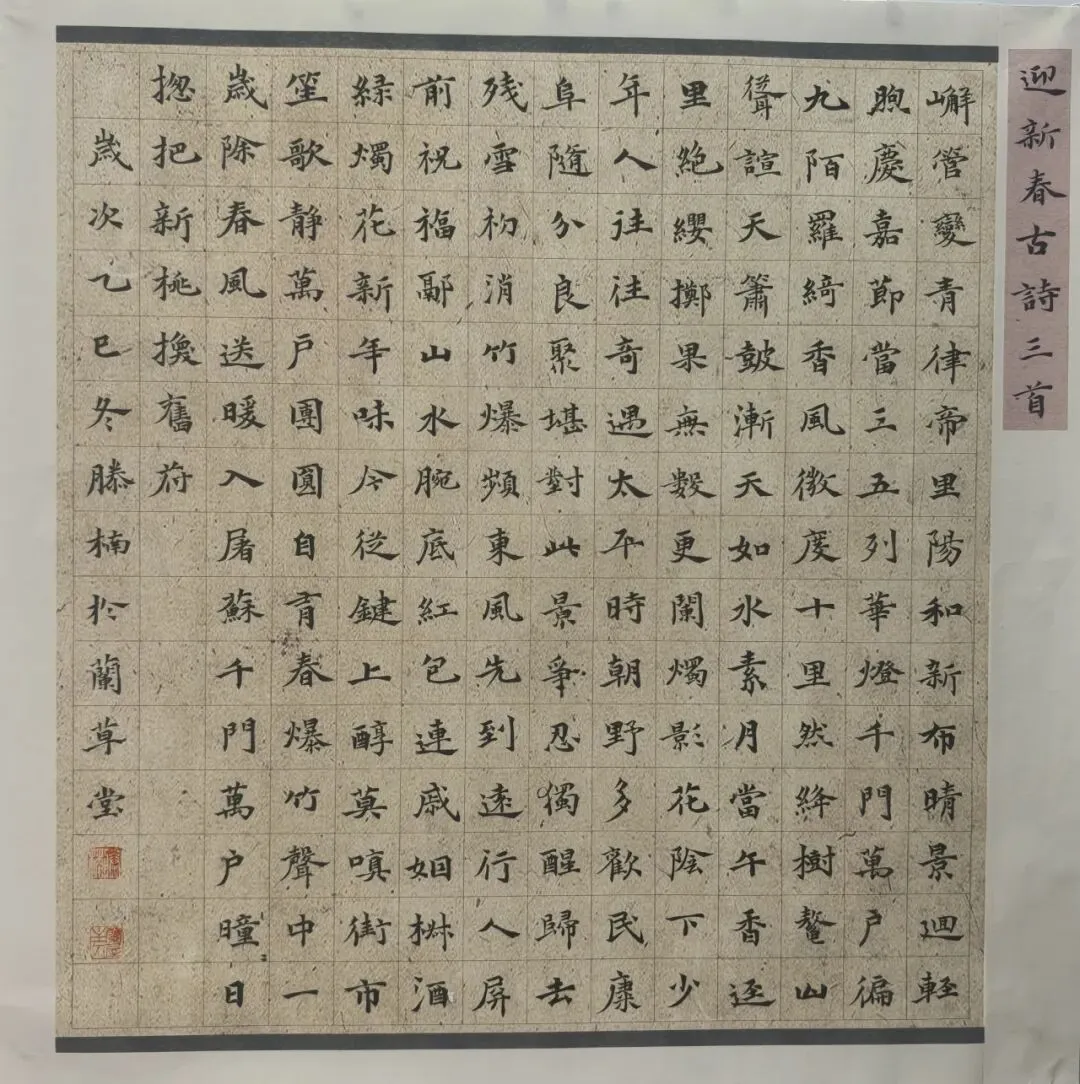 迎新春古詩三首
嶰管變青律帝里陽和新布晴景迴輕
煦慶嘉節當三五列華燈千門萬戶徧
九陌羅綺香風微度十里然絳樹鰲山
聳諠天簫鼓漸天如水素月當午香逕
里絕纓擲果無數更闌燭影花陰下少
年人往往奇遇太平時朝野多歡民康
阜隨分良聚堪對此景爭忍獨醒歸去
残雪初消竹爆頻東風先到遠行人屏
前祝福鄢山水腕底紅包連戚姻椒酒
緑燭花新年味今從鍵上醇莫嗔街市
笙歌静萬戶團圓自有春爆竹聲中一
歲除春風送暖入屠蘇千門萬户曈〻日
揔把新桃換舊符
歲次乙巳冬滕楠於蘭草堂